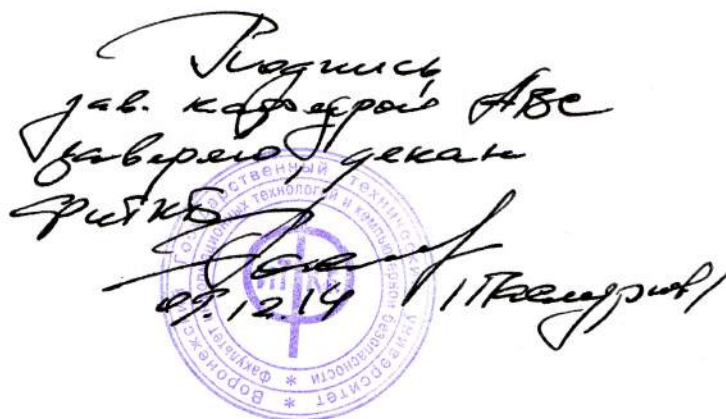 Подпись
зав. кафедрой АВС
заверяю, декан
ФИТКБ
09.12.14
Воронежский Государственный технический университет
Факультет информационных технологий и компьютерной безопасности